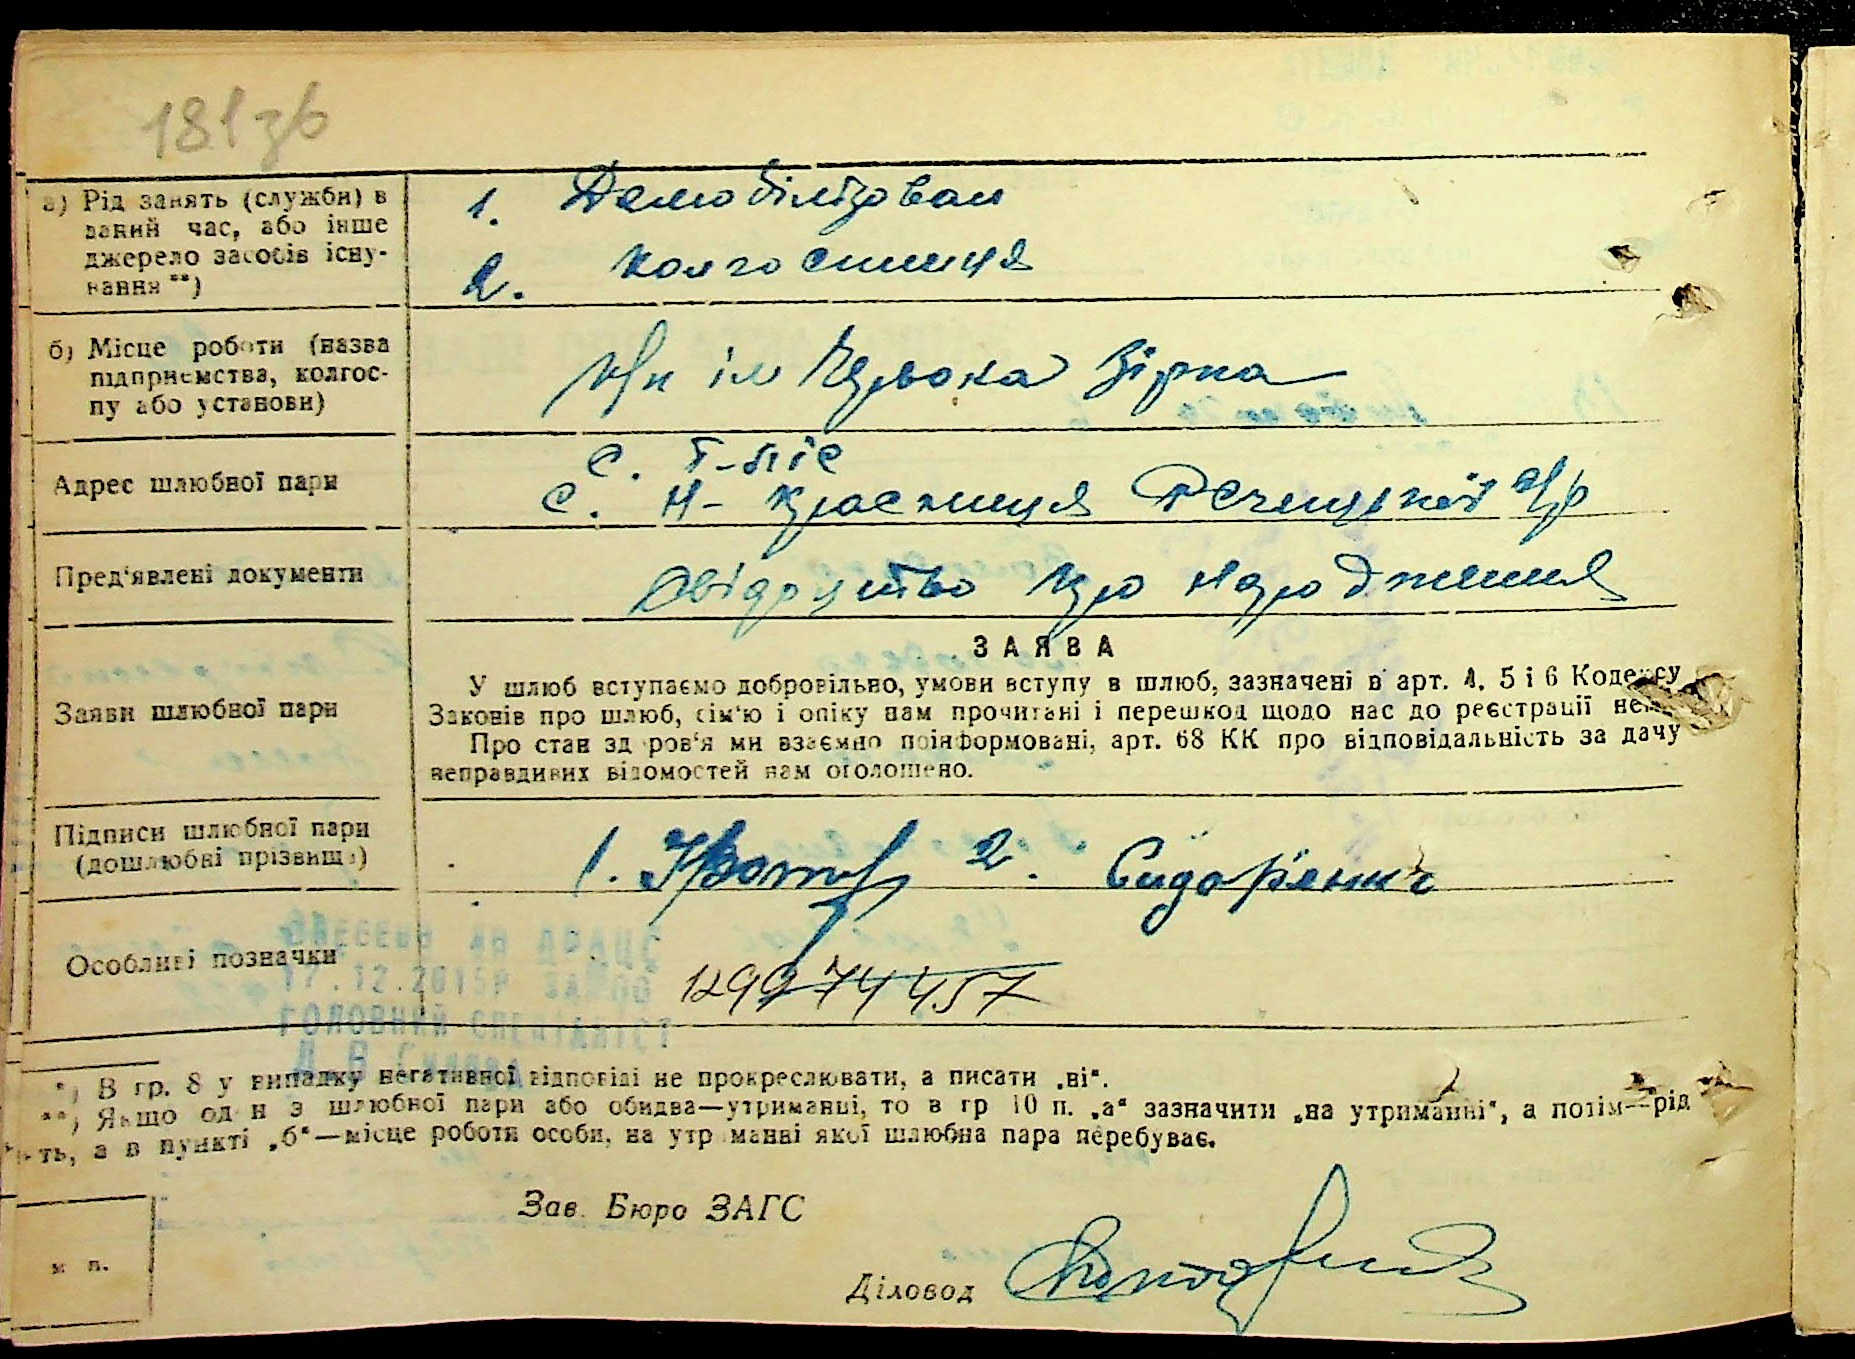 181 зв
а) Рід занять (служби) в
даний час, або інше
джерело засобів існу-
вання **)
1. Демобілізован
2. колгоспниця
б) Місце роботи (назва
підприємства, колгос-
пу або установи)
к/г ім Червона Зірка
Адрес шлюбної пари
с. Г-ліс
с. Н-Красниця
Пред'явлені документи
Свідоцтво про народження
ЗАЯВА
Заяви шлюбної пари
У шлюб вступаємо добровільно, умови вступу в шлюб, зазначені в арт. 4, 5 і 6 Кодексу
Законів про шлюб, сім'ю і опіку нам прочитані і перешкод щодо нас до реєстрації нема.
Про стан здоров'я ми взаємно поінформовані, арт. 68 КК про відповідальність за дачу
неправдивих відомостей нам оголошено.
Підписи шлюбної пари
(дошлюбні прізвища)
1. 2. Сидоренко
Особливі позначки
ВНЕСЕНО АН ДРАЦС
17.12.2015Р
ГОЛОВНИЙ СПЕЦІАЛІСТ
12997 4457
*) В гр. 8 у випадку негативної відповіді не прокреслювати, а писати „ні“.
**) Якщо один з шлюбної пари або обидва—утриманці, то в гр 10 п. „а“ зазначити „на утриманні“, а потім—рід
занять, а в пункті „б“—місце роботи особи, на утриманні якої шлюбна пара перебуває.
Зав. Бюро ЗАГС
м п.
Діловод